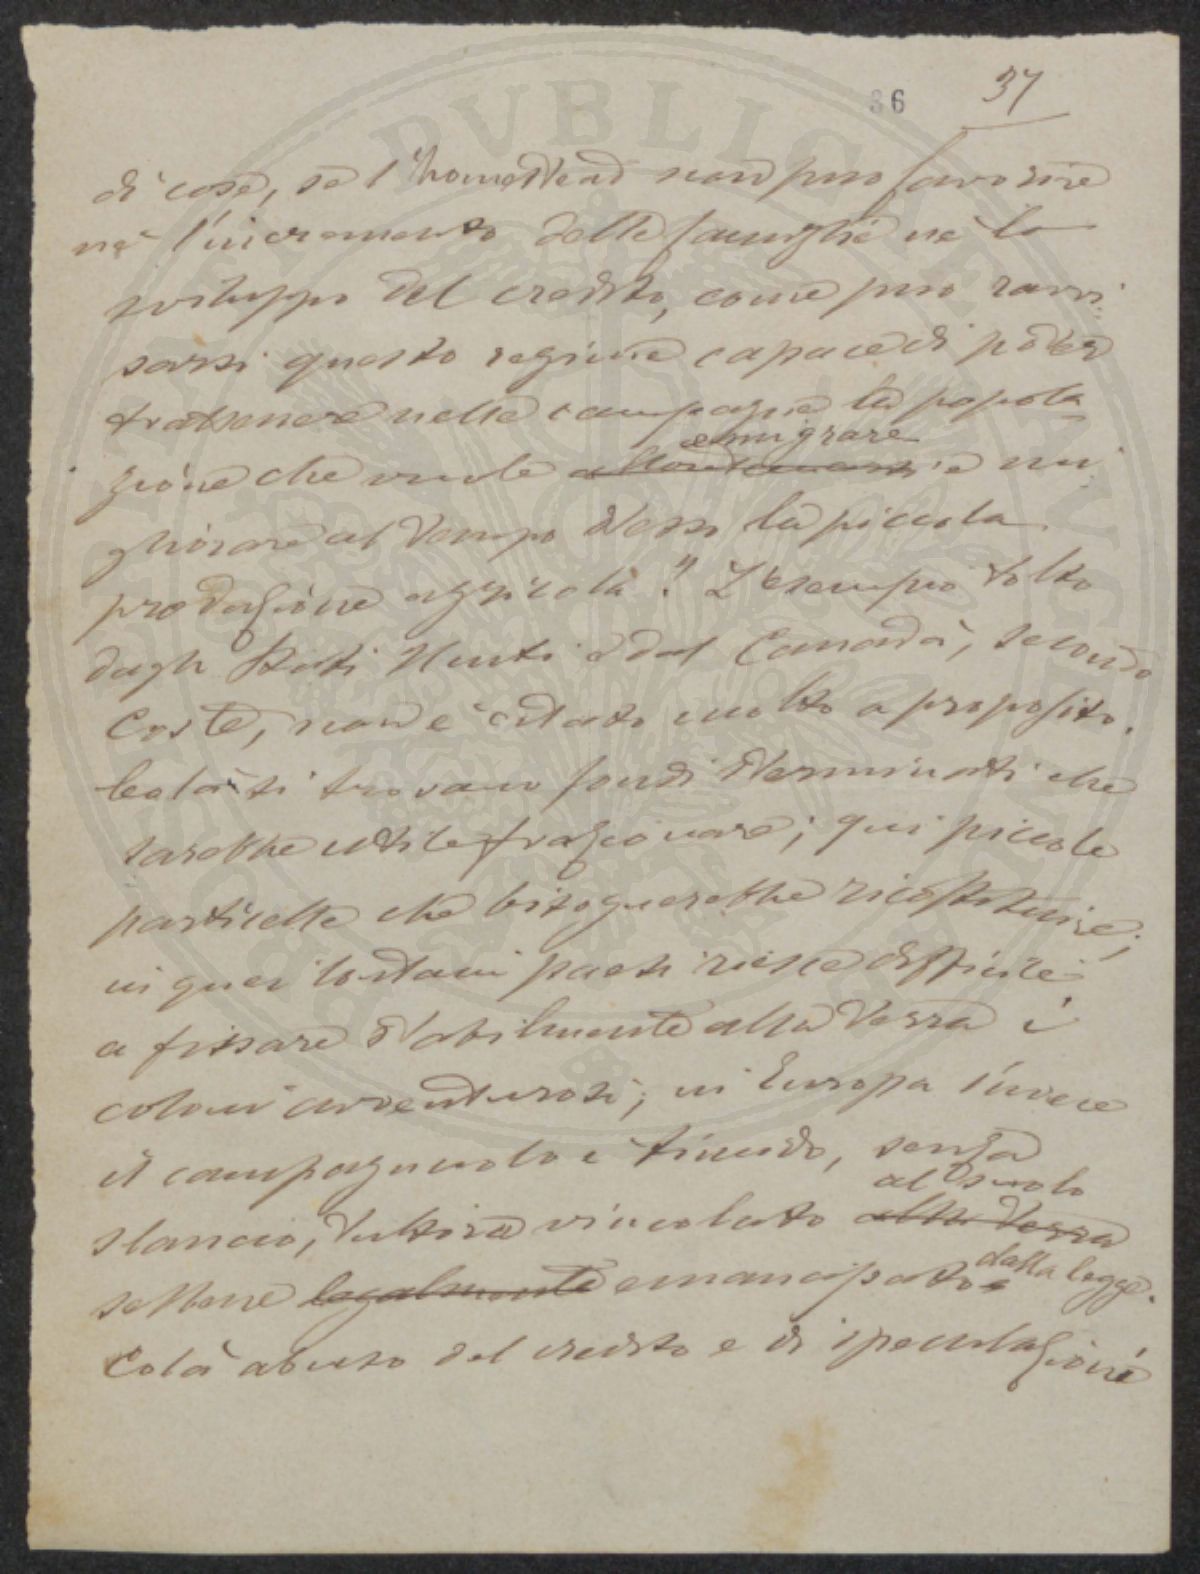 36 37
di cose, se l'homestead non può favorire
nè l'incremento delle famiglie nè lo
sviluppo del credito, come può ravvi
sarsi questo regime capace di poter
trattenere nelle campagne la popola
emigrare
zione che vuole allontanarsi e mi
gliorare al tempo stesso la piccola
produzione agricola? L'esempio tolto
dagli Stati Uniti e dal Canadà, secondo
Coste, non è citato molto a proposito.
Colà si trovano fondi sterminati che
sarebbe utile frazionare; qui piccole
particelle che bisognerebbe ricostituire;
in quei lontani paesi riesce difficile
a fissare stabilmente alla terra i
coloni avventurosi; in Europa invece
il campagnuolo è timido, senza
al suolo
slancio, tuttora vincolato alla terra
sebbene legalmente emancipato dalla legge.
Colà abuso del credito e di speculazione